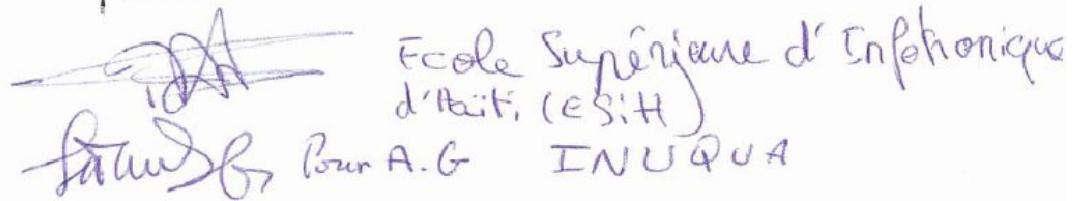 Ecole Supérieure d'Infotronique
d'Haïti (ESiH)
Pour A.G INUQUA